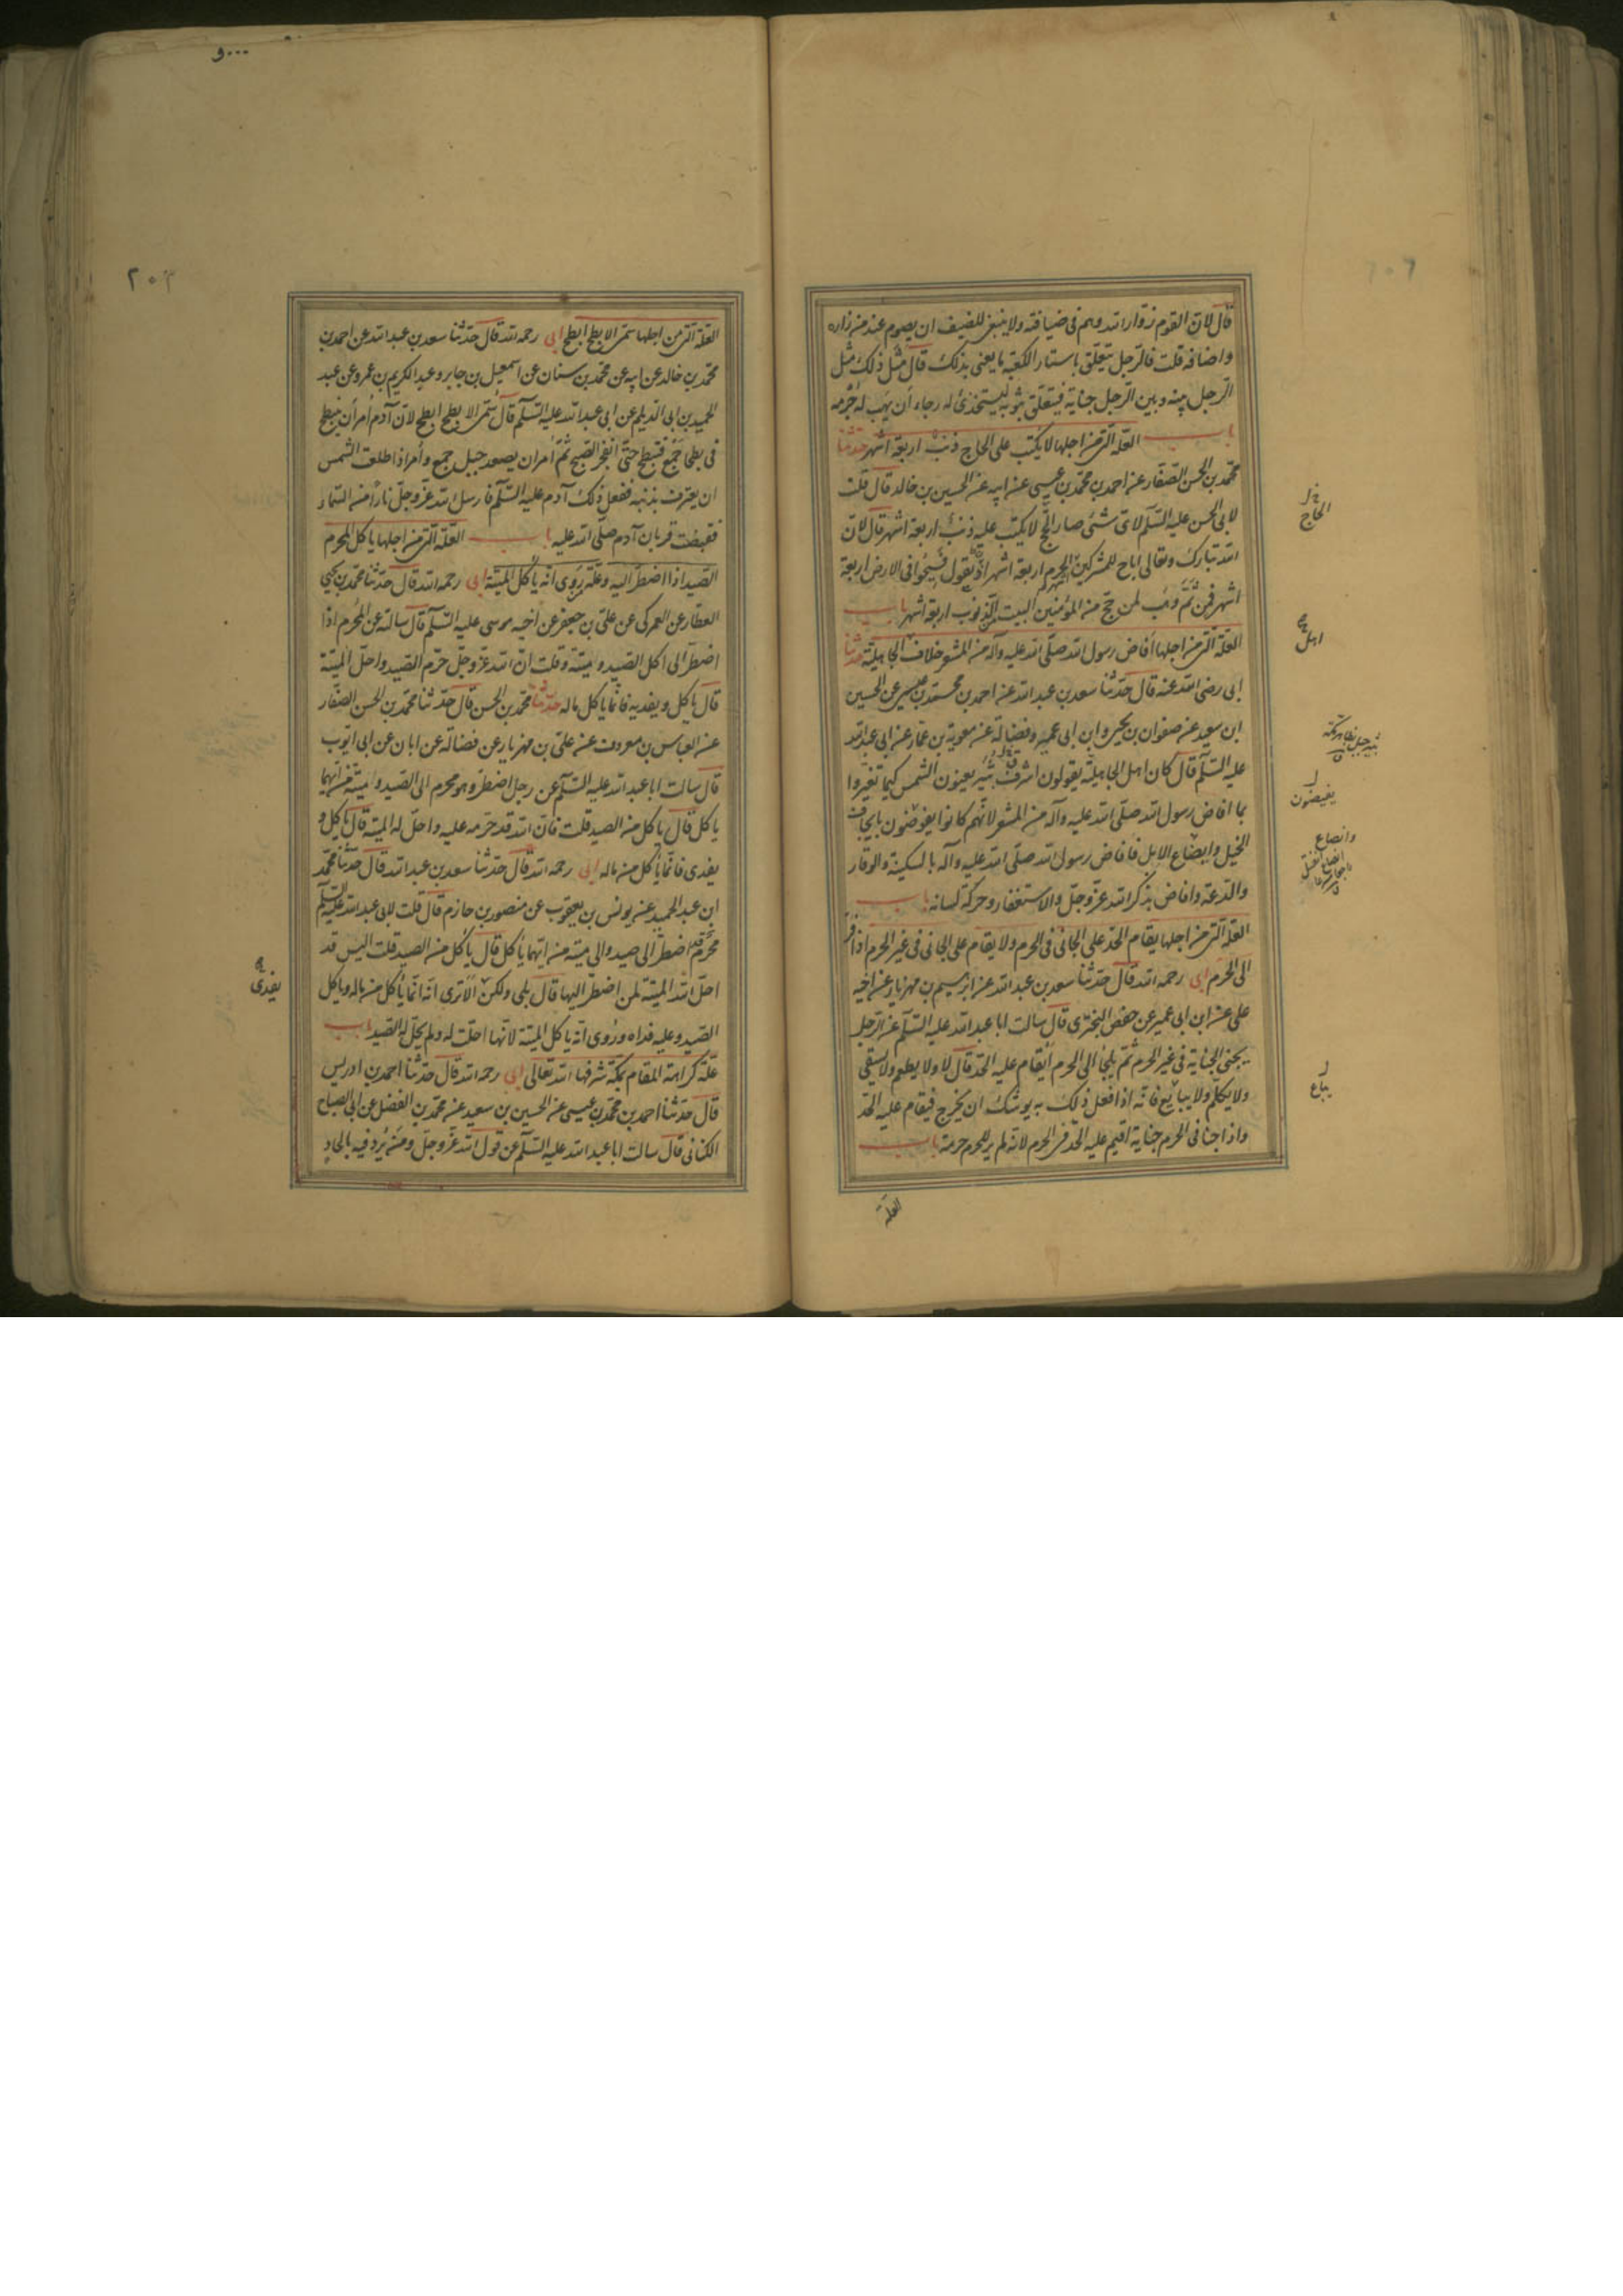 قال لان القوم زوار الله وهم فى ضيافته ولا ينبغى للضيف ان يصوم عند من زاره
واضافه قلت فالرجل يتعلق باستار الكعبة ما يعنى بذلك قال مثل ذلك مثل
الرجل بينه وبين الرجل جناية فيتعلق بثوبه ليستخذئ له رجاء ان يهب له جرمه
باب العلة التى من اجلها لا يكتب على الحاج ذنب اربعة اشهر حدثنا
محمد بن الحسن الصفار عن احمد بن محمد بن عيسى عن ابيه عن الحسين بن خالد قال قلت
لابى الحسن عليه السلم لاى شئ صار الحج لا يكتب عليه ذنب اربعة اشهر قال لان
الله تبارك وتعالى اباح للمشركين الحرم اربعة اشهر اذ يقول فسيحوا فى الارض اربعة
اشهر فمن ثم وهب لمن حج من المؤمنين البيت الذنوب اربعة اشهر باب
العلة التى من اجلها افاض رسول الله صلى الله عليه وآله من المشعر خلاف الجاهلية حدثنا
ابى رضى الله عنه قال حدثنا سعد بن عبد الله عن احمد بن محمد بن عيسى عن الحسين
ابن سعيد عن صفوان بن يحيى وابن ابى عمير وفضالة عن معوية بن عمار عن ابى عبد الله
عليه السلم قال كان اهل الجاهلية يقولون اشرق ثبير يعنون الشمس كيما تغيروا
بما افاض رسول الله صلى الله عليه وآله من المشعر لانهم كانوا يفوضون بايجاف
الخيل وايضاع الابل فافاض رسول الله صلى الله عليه وآله بالسكينة والوقار
والدعة وافاض بذكر الله عز وجل والاستغفار وحركة لسانه باب
العلة التى من اجلها يقام الحد على الجانى فى الحرم ولا يقام على الجانى فى غير الحرم اذا فر
الى الحرم ابى رحمه الله قال حدثنا سعد بن عبد الله عن ابرهيم بن مهزيار عن اخيه
على عن ابن ابى عمير عن حفص البخترى قال سالت ابا عبد الله عليه السلم عن الرجل
يجنى الجناية فى غير الحرم ثم يلجأ الى الحرم ايقام عليه الحد قال لا ولا يطعم ولا يسقى
ولا يكلم ولا يبايع فانه اذا فعل ذلك به يوشك ان يخرج فيقام عليه الحد
واذا جنا فى الحرم جناية اقيم عليه الحد فى الحرم لانه لم ير للحرم حرمة باب
العلة
الحاج
اهل
ثبير جبل بظاهر مكة
يفيضون
وانصاع
يباع
٢٠٣
العلة التى من اجلها سمى الابطح ابطح ابى رحمه الله قال حدثنا سعد بن عبد الله عن احمد بن
محمد بن خالد عن ابيه عن محمد بن سنان عن اسمعيل بن جابر وعبد الكريم بن عمرو عن عبد
الحميد بن ابى الديلم عن ابى عبد الله عليه السلم قال سمى الابطح ابطح لان آدم امر ان ينبطح
فى بطحاء جمع فتبطح حتى انفجر الصبح ثم امر ان يصعد جبل جمع وامر اذا طلعت الشمس
ان يعترف بذنبه ففعل ذلك آدم عليه السلم فارسل الله عز وجل نارا من السماء
فقبضت قربان آدم صلى الله عليه باب العلة التى من اجلها ياكل المحرم
الصيد اذا اضطر اليه وعلة روى انه ياكل الميتة ابى رحمه الله قال حدثنا محمد بن يحيى
العطار عن العمركى عن على بن جعفر عن اخيه موسى عليه السلم قال سالته عن المحرم اذا
اضطر الى اكل الصيد وميتة وقلت ان الله عز وجل حرم الصيد واحل الميتة
قال ياكل ويفديه فانما ياكل ماله حدثنا محمد بن الحسن قال حدثنا محمد بن الحسن الصفار
عن العباس بن معروف عن على بن مهزيار عن فضالة عن ابان عن ابى ايوب
قال سالت ابا عبد الله عليه السلم عن رجل اضطر وهو محرم الى الصيد وميتة من ايهما
ياكل قال ياكل من الصيد قلت فان الله قد حرمه عليه واحل له الميتة قال ياكل و
يفدى فانما ياكل من ماله ابى رحمه الله قال حدثنا سعد بن عبد الله قال حدثنا محمد
ابن عبد الحميد عن يونس بن يعقوب عن منصور بن حازم قال قلت لابى عبد الله عليه السلم
محرم اضطر الى صيد والى ميتة من ايهما ياكل قال ياكل من الصيد قلت اليس قد
احل الله الميتة لمن اضطر اليها قال بلى ولكن الا ترى انه انما ياكل من ماله وياكل
الصيد وعليه فداه وروى انه ياكل الميتة لانها احلت له ولم يحل له الصيد باب
علة كراهة المقام بمكة شرفها الله تعالى ابى رحمه الله قال حدثنا احمد بن ادريس
قال حدثنا احمد بن محمد بن عيسى عن الحسين بن سعيد عن محمد بن الفضل عن ابى الصباح
الكنانى قال سالت ابا عبد الله عليه السلم عن قول الله عز وجل ومن يرد فيه بالحاد
يفدى